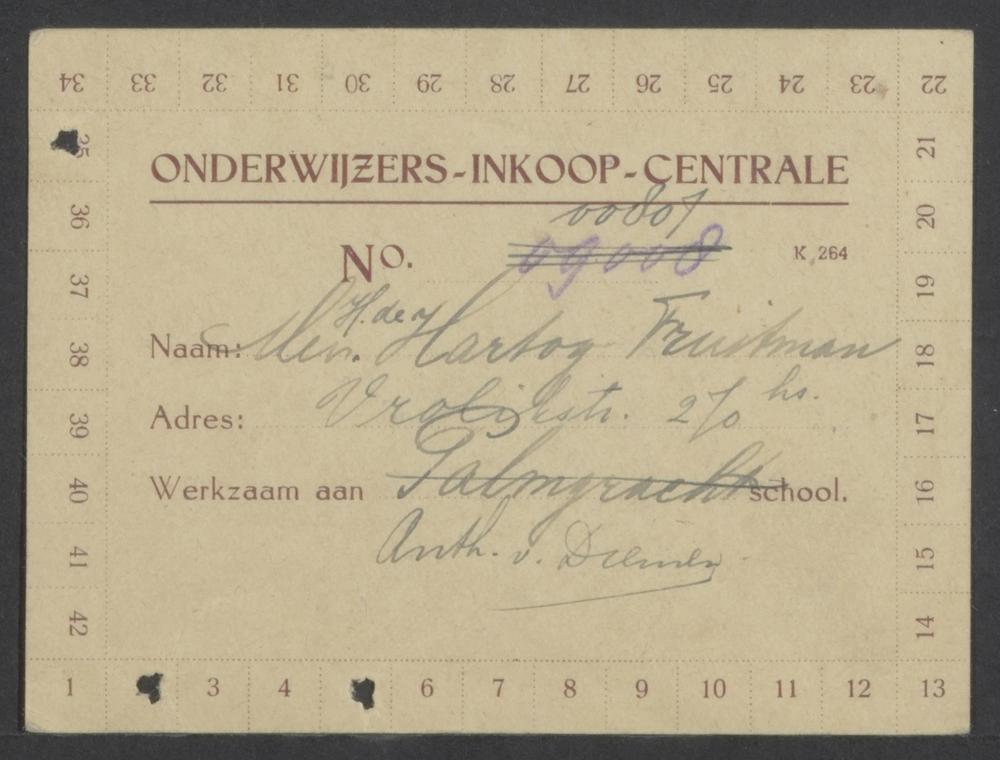 34 33 32 31 30 29 28 27 26 25 24 23 22
35 21
ONDERWIJZERS-INKOOP-CENTRALE
36 20
00807
No. 09008 K 264
37 19
H. de
Naam: Mevr. Hartog Fruitman
38 18
Adres: Vrolijkstr. 270 hs.
39 17
Werkzaam aan Palmgracht school.
40 16
Anth. v. Diemen
41 15
42 14
1 3 4 6 7 8 9 10 11 12 13